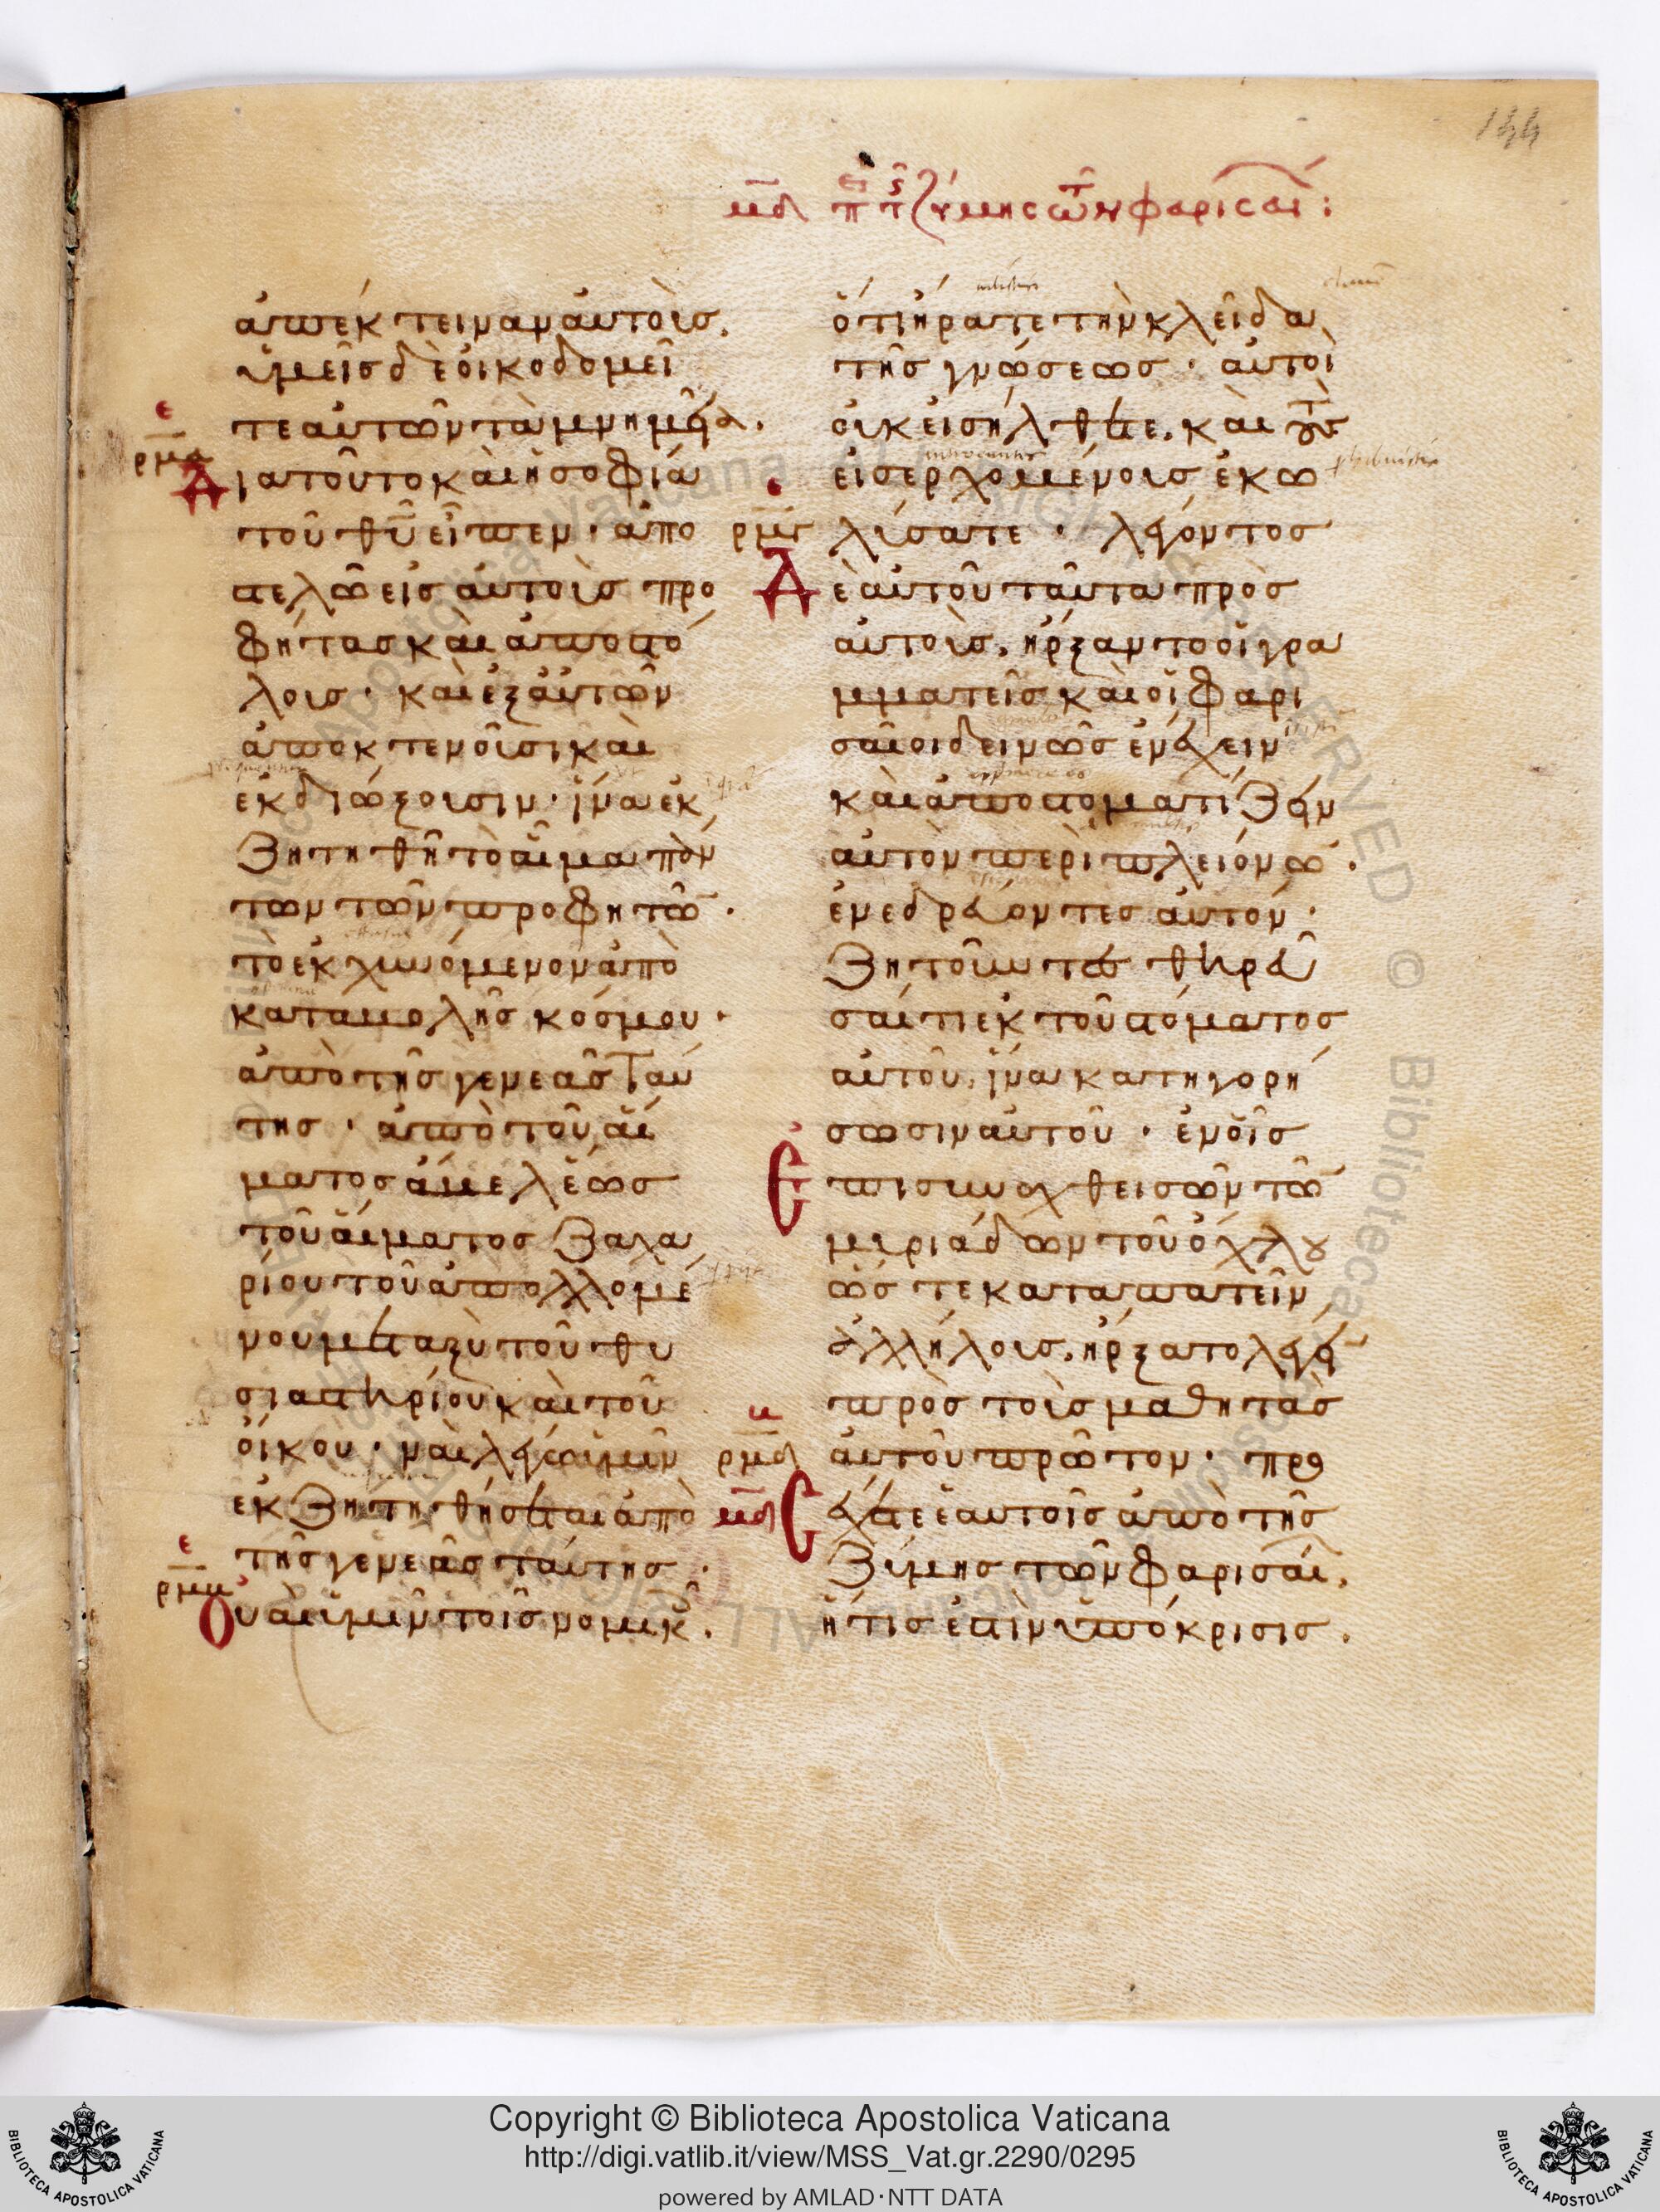 144
μδ π τ ζύμης τῶν φαρισαί :
ἀπέκτειναν ἀυτοὺς.
ὑμεῖς δὲ ὀικοδομεῖ
τε ἀυτῶν τὰ μνημεῖα.
ε
ρμα
Διατοῦτο καὶ ἡ σοφία
τοῦ θῦ εἶπεν· ἀπο
στελῶ εἰς ἀυτοὺς προ
φήτας καὶ ἀποστό
λους· καὶ ἐξ ἀυτῶν
ἀποκτενοῦσι καὶ
ἐκδιώξουσιν· ἵνα ἐκ
ζητηθῆ τὸ αἷμα πάν
των τῶν προφητῶ·
τὸ ἐκχυνόμενον ἀπὸ
καταβολῆς κόσμου·
ἀπὸ τῆς γενεᾶς ταύ
της· ἀπὸ τοῦ αἵ
ματος ἄβελ ἕως
τοῦ αἵματος ζαχα
ρίου τοῦ ἀπολλομέ
νου μεταξὺ τοῦ θυ
σιαστηρίου καὶ τοῦ
ὄικου· ναὶ λέγω ὑμῖν
ἐκζητηθήσεται ἀπὸ
τῆς γενεᾶς ταύτης·
ε
ρμβ
Ουαὶ ὑμῖν τοῖς νομικοῖ.
ὅτι ἤρατε τὴν κλεῖδα
τῆς γνώσεως· ἀυτοὶ
ὀυκ εἰσήλθετε, καὶ τοὺς
εἰσερχομένους ἐκω
ε
ρμγ
λύσατε· λέγοντος
Δὲ ἀυτοῦ ταῦτα πρὸς
ἀυτοὺς, ἤρξαντο οἱ γρα
μματεῖς καὶ οἱ φαρι
σαῖοι δεινῶς ἐνέχειν
καὶ ἀποστοματίζειν
ἀυτὸν περὶ πλειόνω·
ἐνεδρεύοντες ἀυτόν·
ζητοῦντες θηρεῦ
σαί τι ἐκ τοῦ στόματος
ἀυτοῦ, ἵνα κατηγορή
σωσιν ἀυτοῦ· ἐν οἷς
Ἐπισυναχθεισῶν τῶ
μυριάδων τοῦ ὄχλου
ὥστε καταπατεῖν
ἀλλήλους, ἤρξατο λέγειν
πρὸς τοὺς μαθητὰς
β
ρμδ
ἀυτοῦ πρῶτον· προ
μδ
σέχετε ἑαυτοῖς ἀπὸ τῆς
ζύμης τῶν φαρισαί.
ἥτις ἐστὶν ὑπόκρισις.
Copyright © Biblioteca Apostolica Vaticana
http://digi.vatlib.it/view/MSS_Vat.gr.2290/0295
powered by AMLAD·NTT DATA
BIBLIOTECA APOSTOLICA VATICANA
BIBLIOTECA APOSTOLICA VATICANA